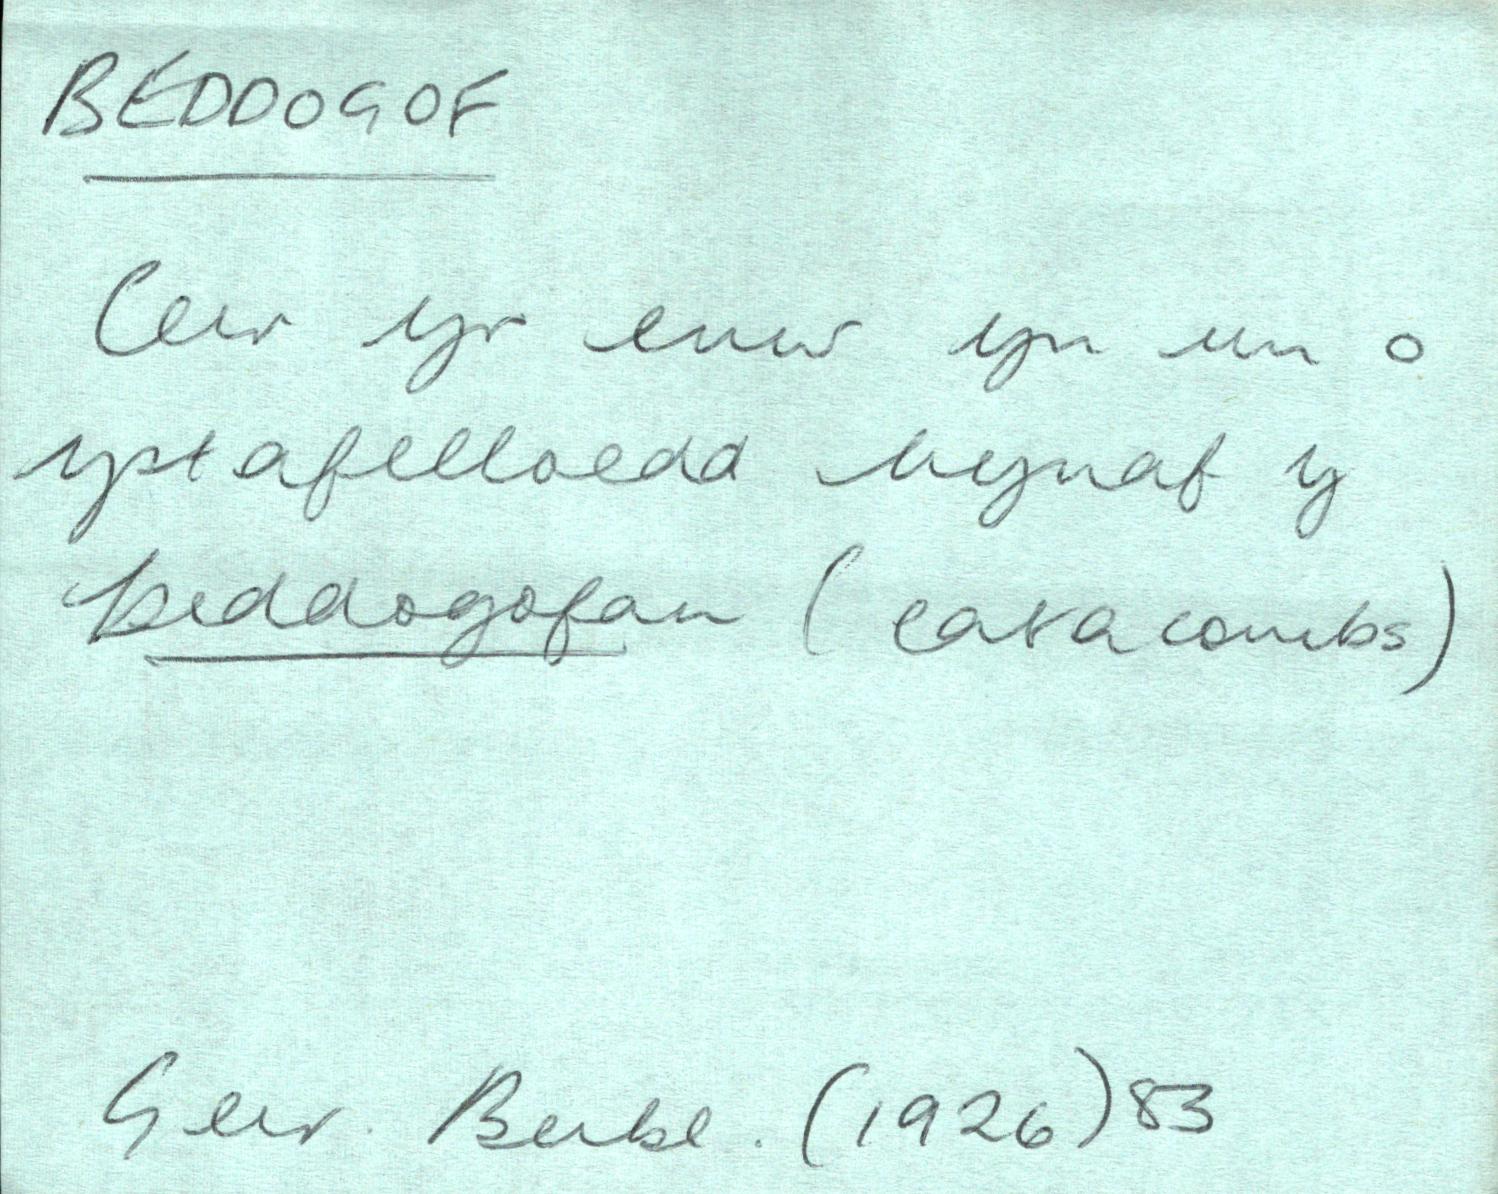 BEDDOGOF
Ceir yr enw yn un o
ystafelloedd hynaf y
beddogofau (catacombs)
Geir. Beibl. (1926) 83